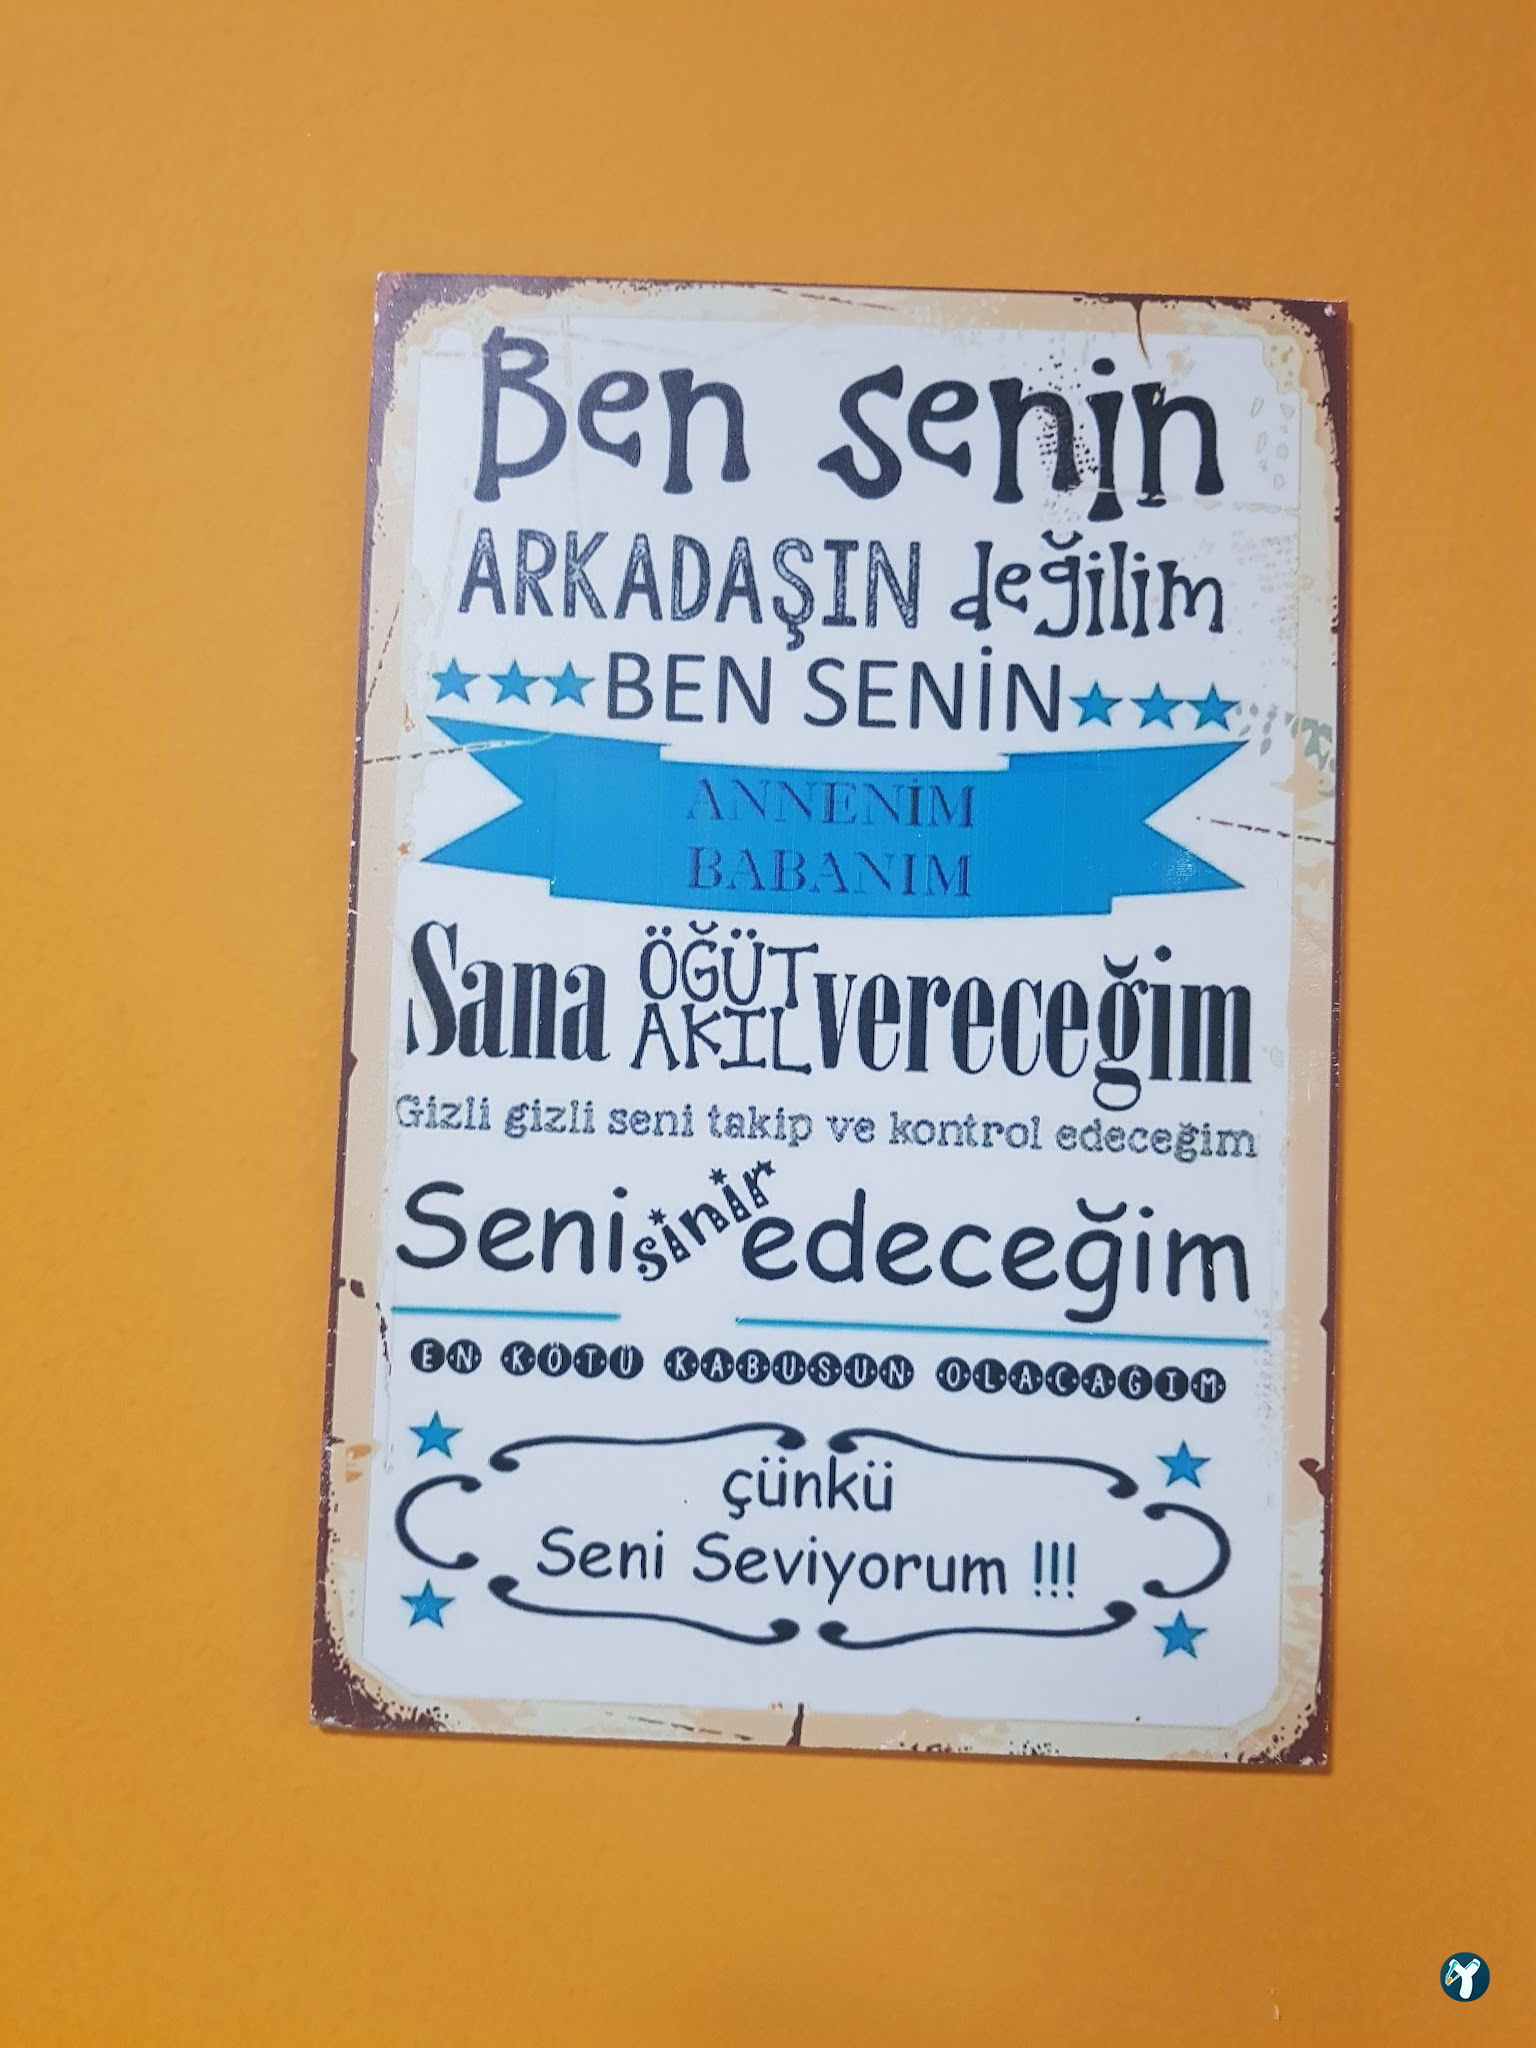 Ben senin
ARKADAŞIN değilim
BEN SENİN
ANNENİM
BABANIM
Sana ÖĞÜT AKIL vereceğim
Gizli gizli seni takip ve kontrol edeceğim
Seni sinir edeceğim
EN KÖTÜ KABUSUN OLACAĞIM
çünkü
Seni Seviyorum !!!